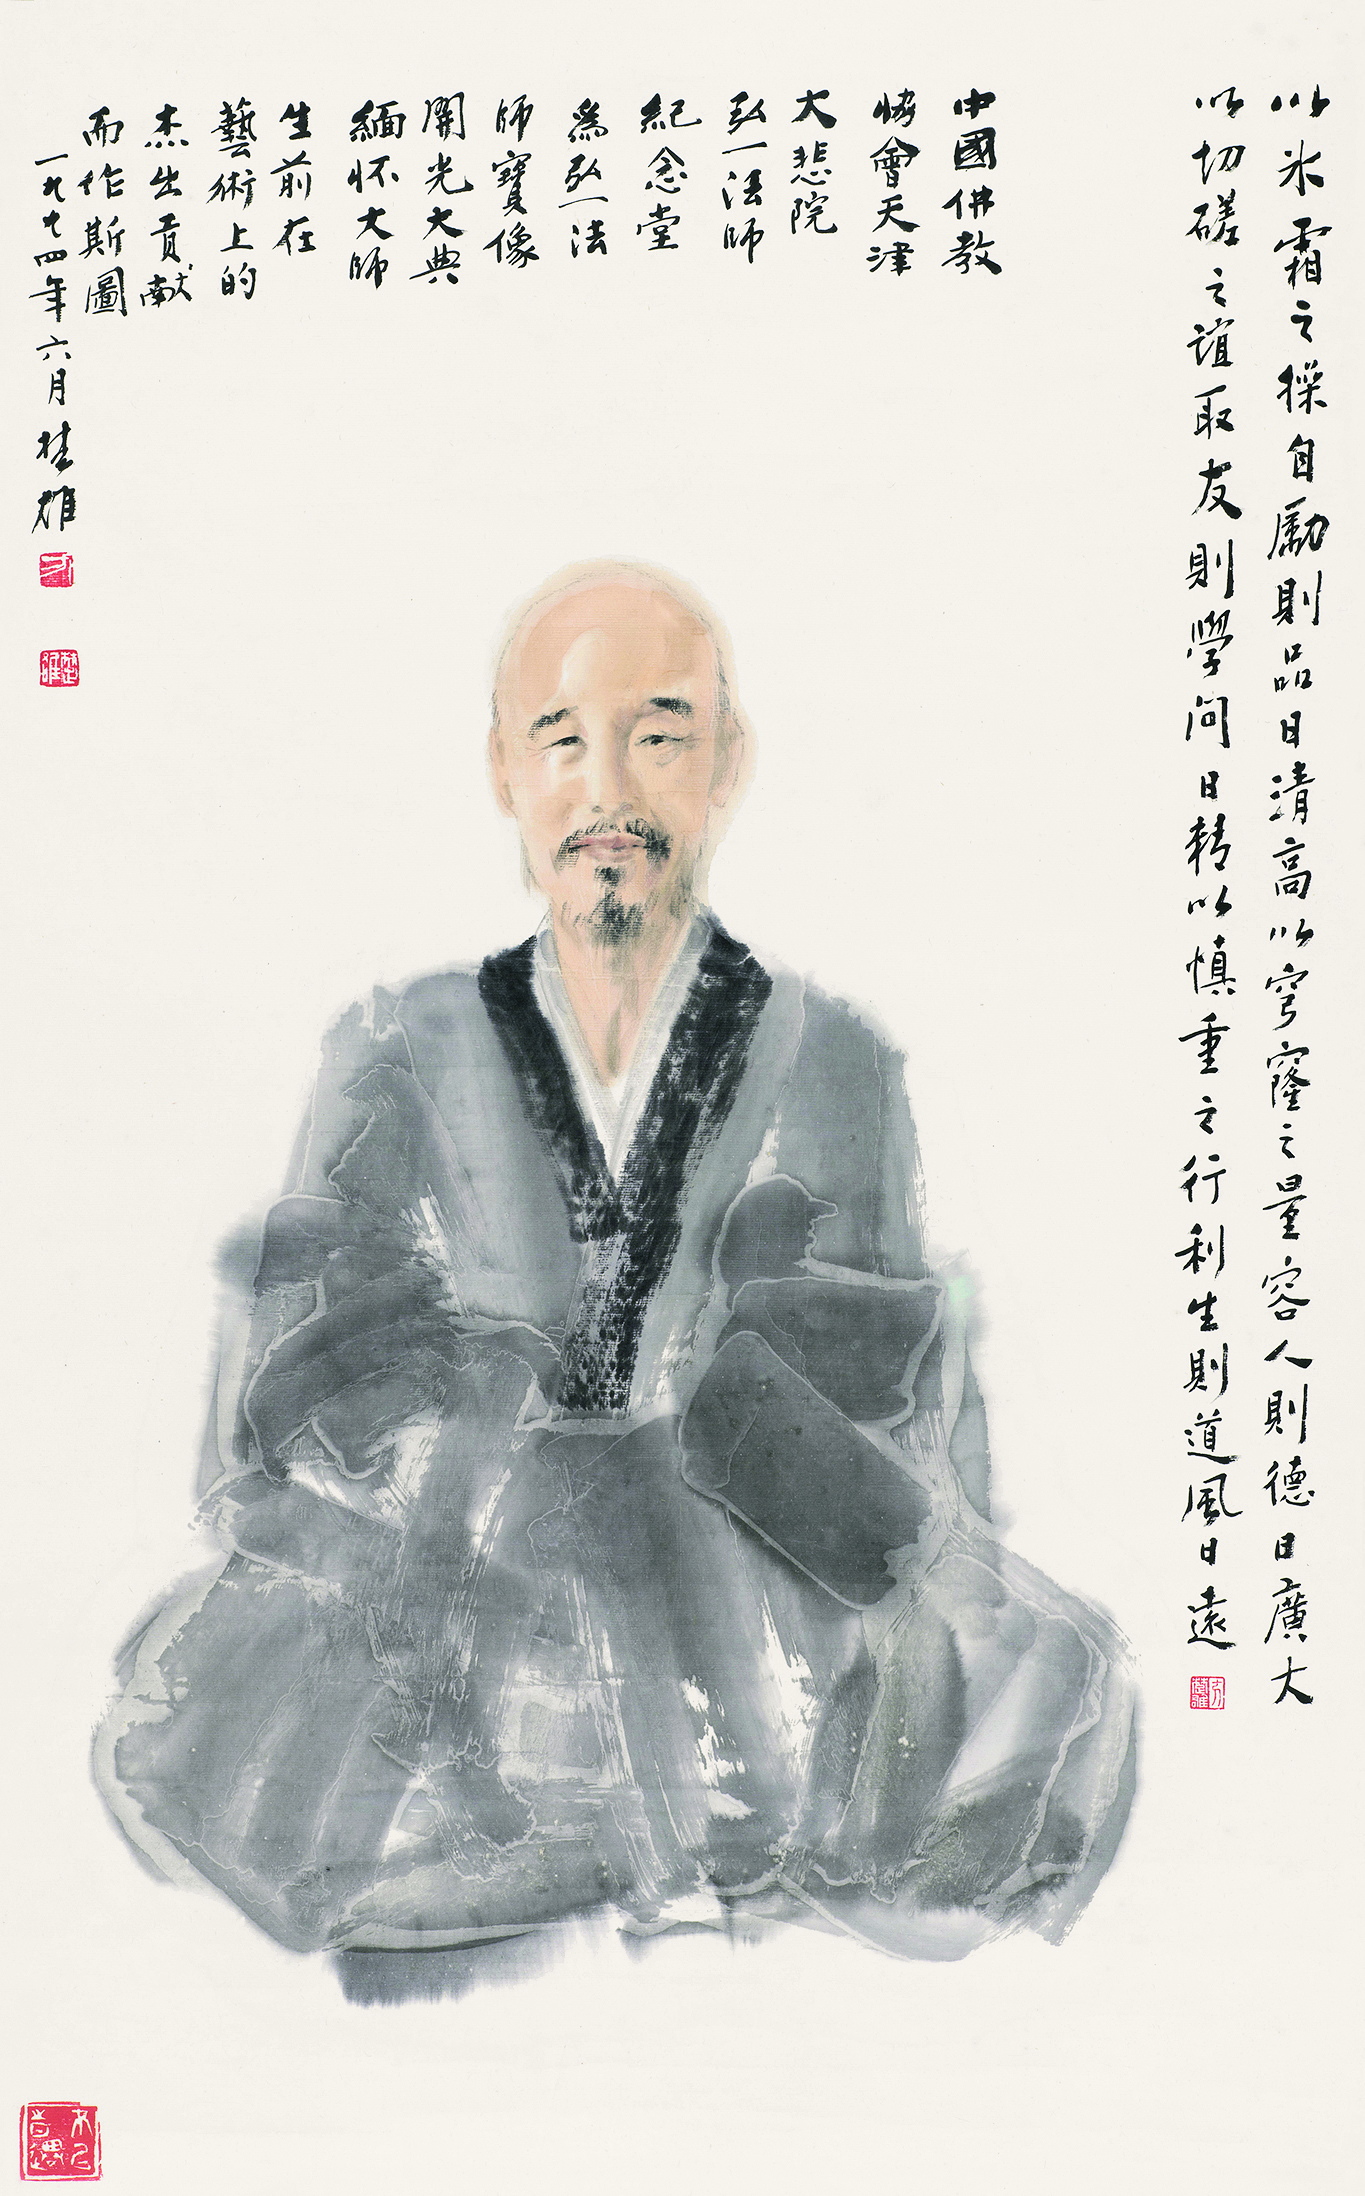 以氷霜之操自勵則品日清高以穹窿之量容人則德日廣大
以切磋之誼取友則學問日精以慎重之行利生則道風日遠
中國佛教
協會天津
大悲院
弘一法師
紀念堂
爲弘一法
師寶像
開光大典
緬怀大師
生前在
藝術上的
杰出貢献
而作斯圖
一九九四年六月楚雄
方
楚雄
方楚雄